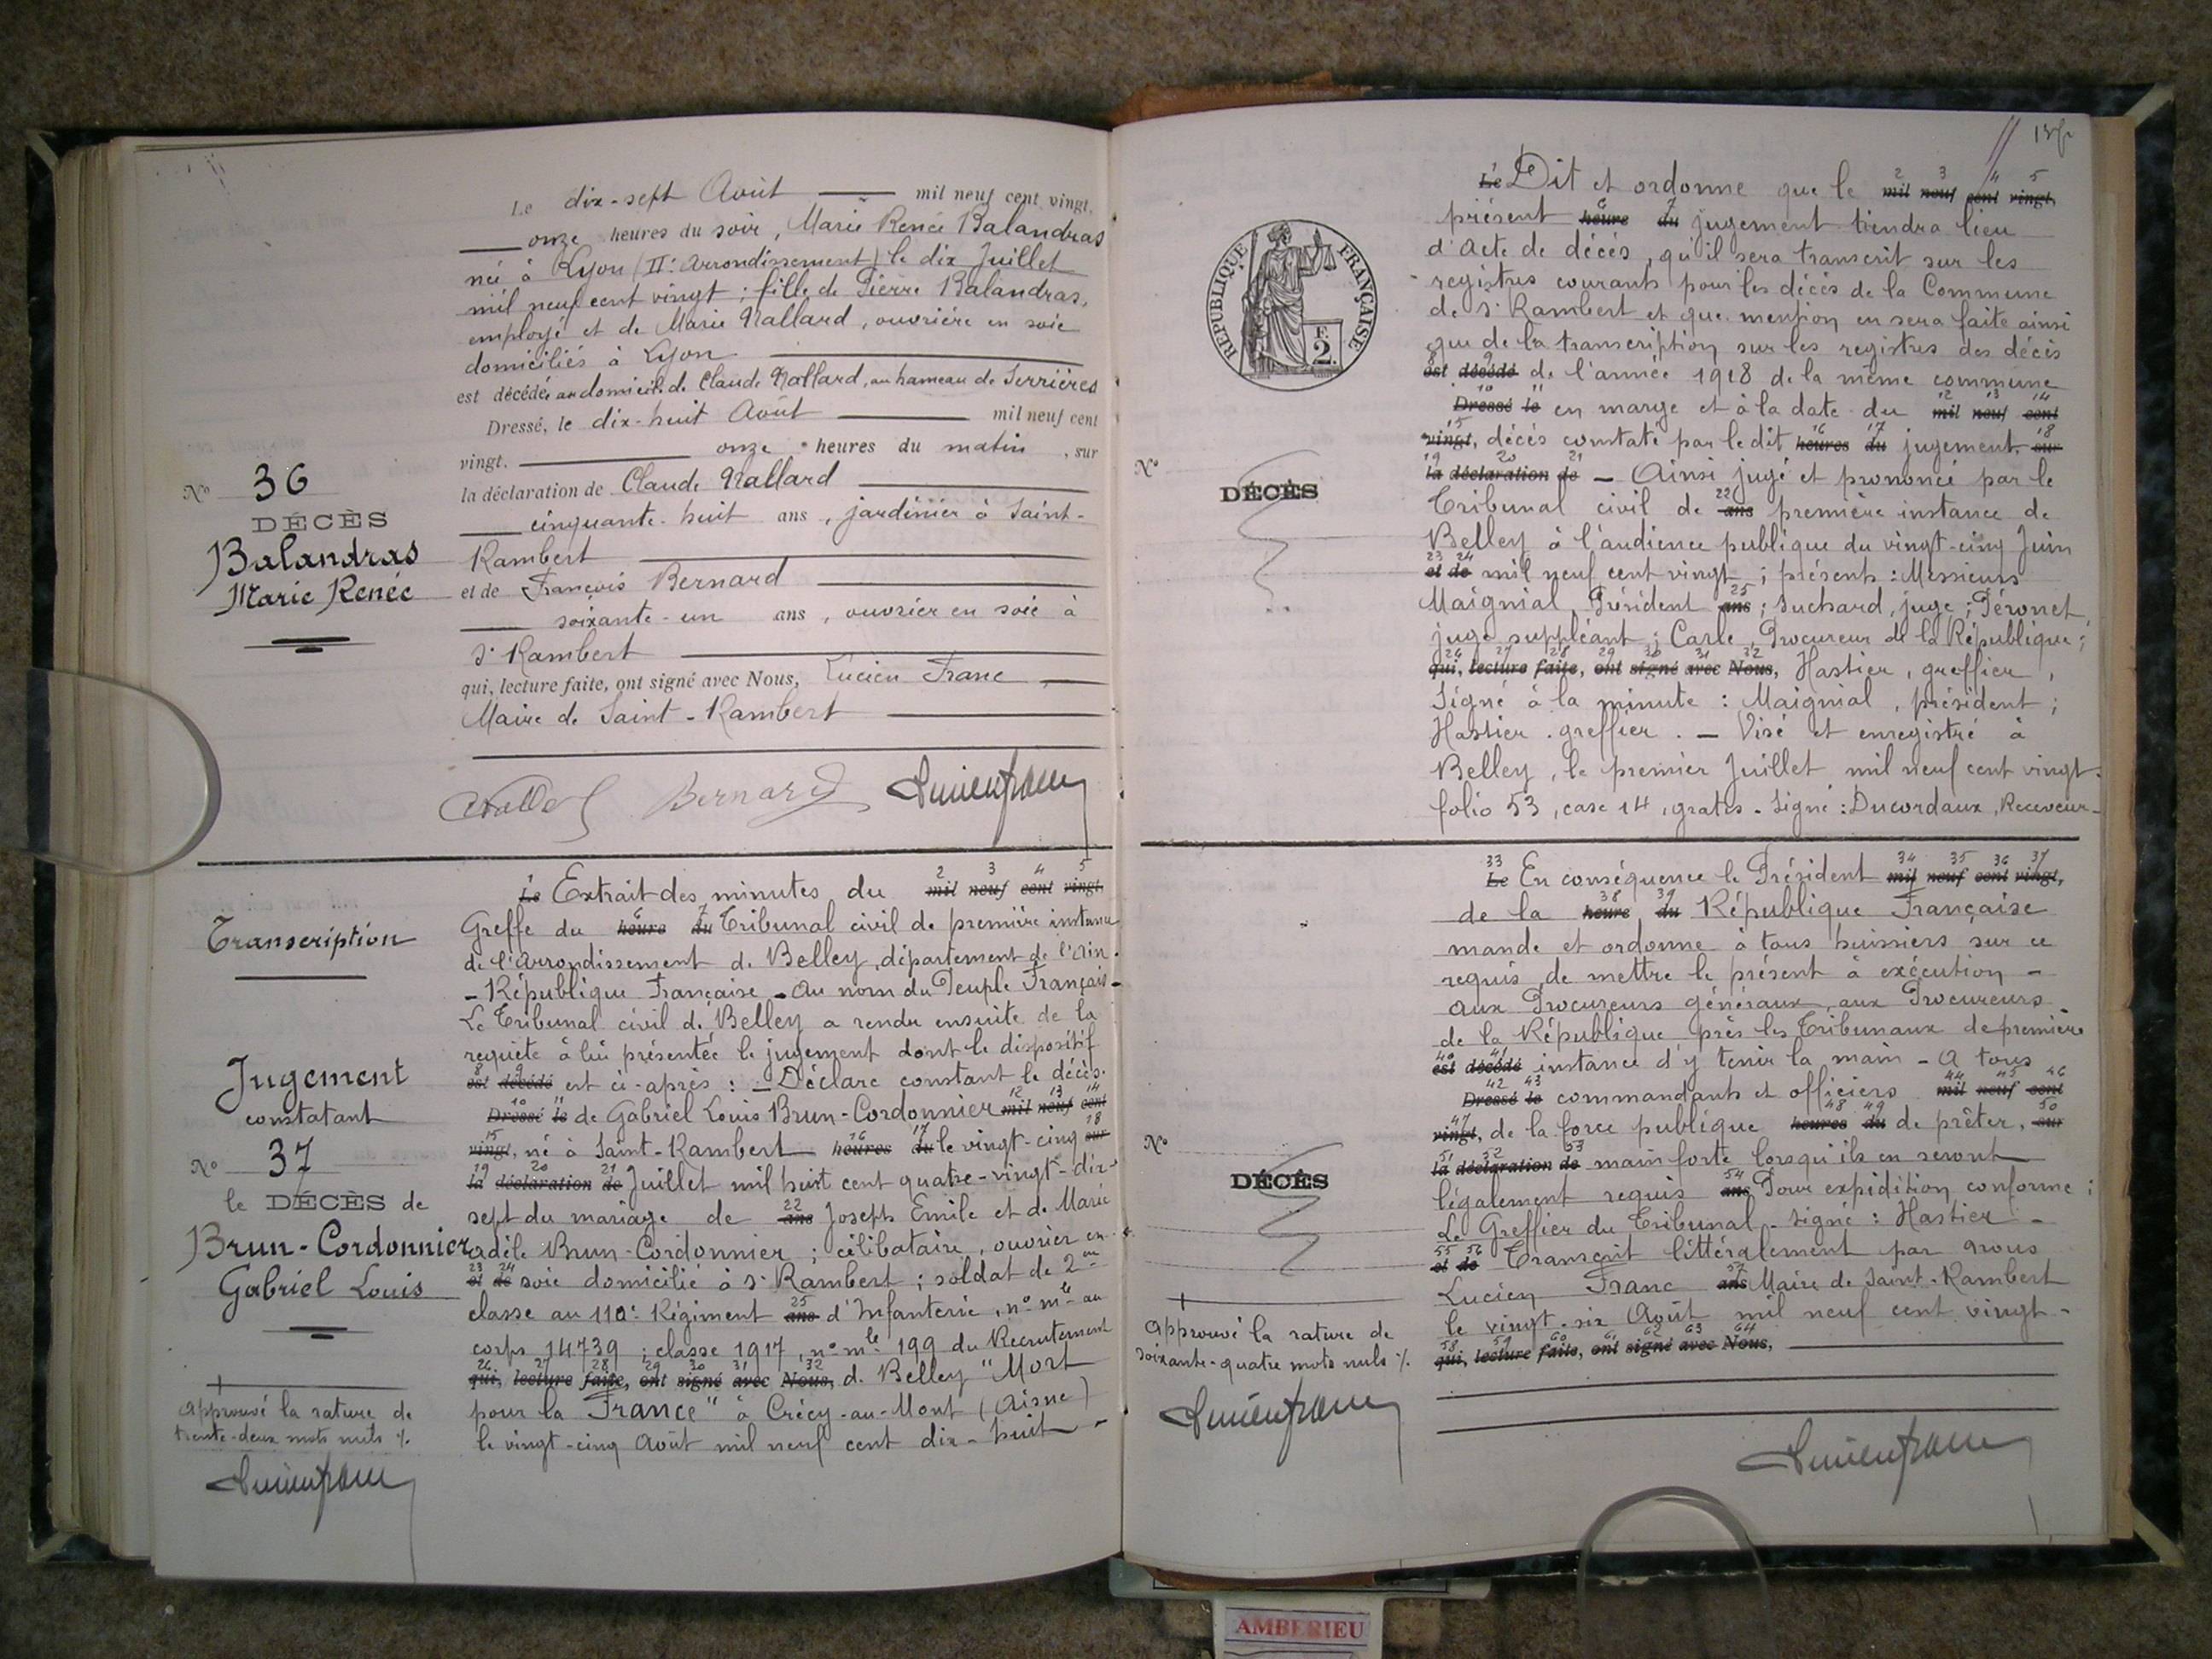 Le dix-sept Août mil neuf cent vingt,
onze heures du soir, Marie Renée Balandras
née à Lyon (IIe arrondissement) le dix Juillet
mil neuf cent vingt ; fille de Pierre Balandras,
employé et de Marie Nallard, ouvrière en soie
domiciliés à Lyon
est décédée au domicile de Claude Nallard, au hameau de Serrières
Dressé, le dix-huit Août mil neuf cent
vingt. onze heures du matin, sur
la déclaration de Claude Nallard
cinquante-huit ans, jardinier à Saint-
Rambert
et de François Bernard
soixante-un ans, ouvrier en soie à
St Rambert
qui, lecture faite, ont signé avec Nous, Lucien Franc,
Maire de Saint-Rambert
N° 36
DÉCÈS
Balandras
Marie Renée
Bernard
Transcription
Jugement
constatant
N° 37
le DÉCÈS de
Brun-Cordonnier
Gabriel Louis
Approuvé la rature de
trente-deux mots nuls
2 3 4 5
Le Extrait des minutes du mil neuf cent vingt,
6 7
Greffe du heure du Tribunal civil de première instance
de l'arrondissement de Belley, département de l'Ain.
- République Française - Au nom du Peuple Français -
Le Tribunal civil de Belley a rendu ensuite de la
requête à lui présentée le jugement dont le dispositif
8 9
est décédé est ci-après : - Déclare constant le décès
10 11 12 13 14
Dressé le de Gabriel Louis Brun-Cordonnier mil neuf cent
15 16 17 18
vingt, né à Saint-Rambert heures du le vingt-cinq sur
19 20 21
la déclaration de Juillet mil huit cent quatre-vingt-dix-
22
sept du mariage de ans Joseph Emile et de Marie
adèle Brun-Cordonnier ; célibataire, ouvrier en
23 24
et de soie domicilié à St Rambert ; soldat de 2me
25
classe au 110e Régiment ans d'Infanterie, n° mle au
corps 14739 ; classe 1917, n° mle 199 du Recrutement
26 27 28 29 30 31 32
qui, lecture faite, ont signé avec Nous, de Belley "Mort
pour la France" à Crécy-au-Mont (Aisne)
le vingt-cinq Août mil neuf cent dix-huit -
RÉPUBLIQUE FRANÇAISE
F.
2.
N°
DÉCÈS
2 3 4 5
Le Dit et ordonne que le mil neuf cent vingt,
6 7
présent heure du jugement tiendra lieu
d'acte de décès, qu'il sera transcrit sur les
registres courants pour les décès de la Commune
de St Rambert et que mention en sera faite ainsi
que de la transcription sur les registres des décès
8 9
est décédé de l'année 1918 de la même commune
10 11 12 13 14
Dressé le en marge et à la date du mil neuf cent
15 16 17 18
vingt, décès constaté par le dit heures du jugement. sur
19 20 21
la déclaration de - Ainsi jugé et prononcé par le
22
Tribunal civil de ans première instance de
Belley à l'audience publique du vingt-cinq Juin
23 24
et de mil neuf cent vingt ; présents : Messieurs
25
Maignial, Président ans ; Suchard, juge ; Péronet,
juge suppléant ; Carle, Procureur de la République ;
26 27 28 29 30 31 32
qui, lecture faite, ont signé avec Nous, Hastier, greffier,
Signé à la minute : Maignial, président ;
Hastier, greffier. - Visé et enregistré à
Belley, le premier Juillet mil neuf cent vingt.
folio 53, case 14, gratis - Signé : Ducordaux, Receveur -
33 34 35 36 37
Le En conséquence le Président mil neuf cent vingt,
38 39
de la heure du République Française
mande et ordonne à tous huissiers sur ce
requis de mettre le présent à exécution -
aux Procureurs généraux, aux Procureurs
de la République près les Tribunaux de première
40 41
est décédé instance d'y tenir la main - A tous
42 43 44 45 46
Dressé le commandants et officiers mil neuf cent
47 48 49 50
vingt, de la force publique heures du de prêter, sur
51 52 53
la déclaration de main forte lorsqu'ils en seront
54
légalement requis ans Pour expédition conforme :
Le Greffier du Tribunal - signé : Hastier -
55 56
et de Transcrit littéralement par nous
57
Lucien Franc ans Maire de Saint-Rambert
le vingt-six Août mil neuf cent vingt -
58 59 60 61 62 63 64
qui, lecture faite, ont signé avec Nous,
N°
DÉCÈS
Approuvé la rature de
soixante-quatre mots nuls
AMBERIEU